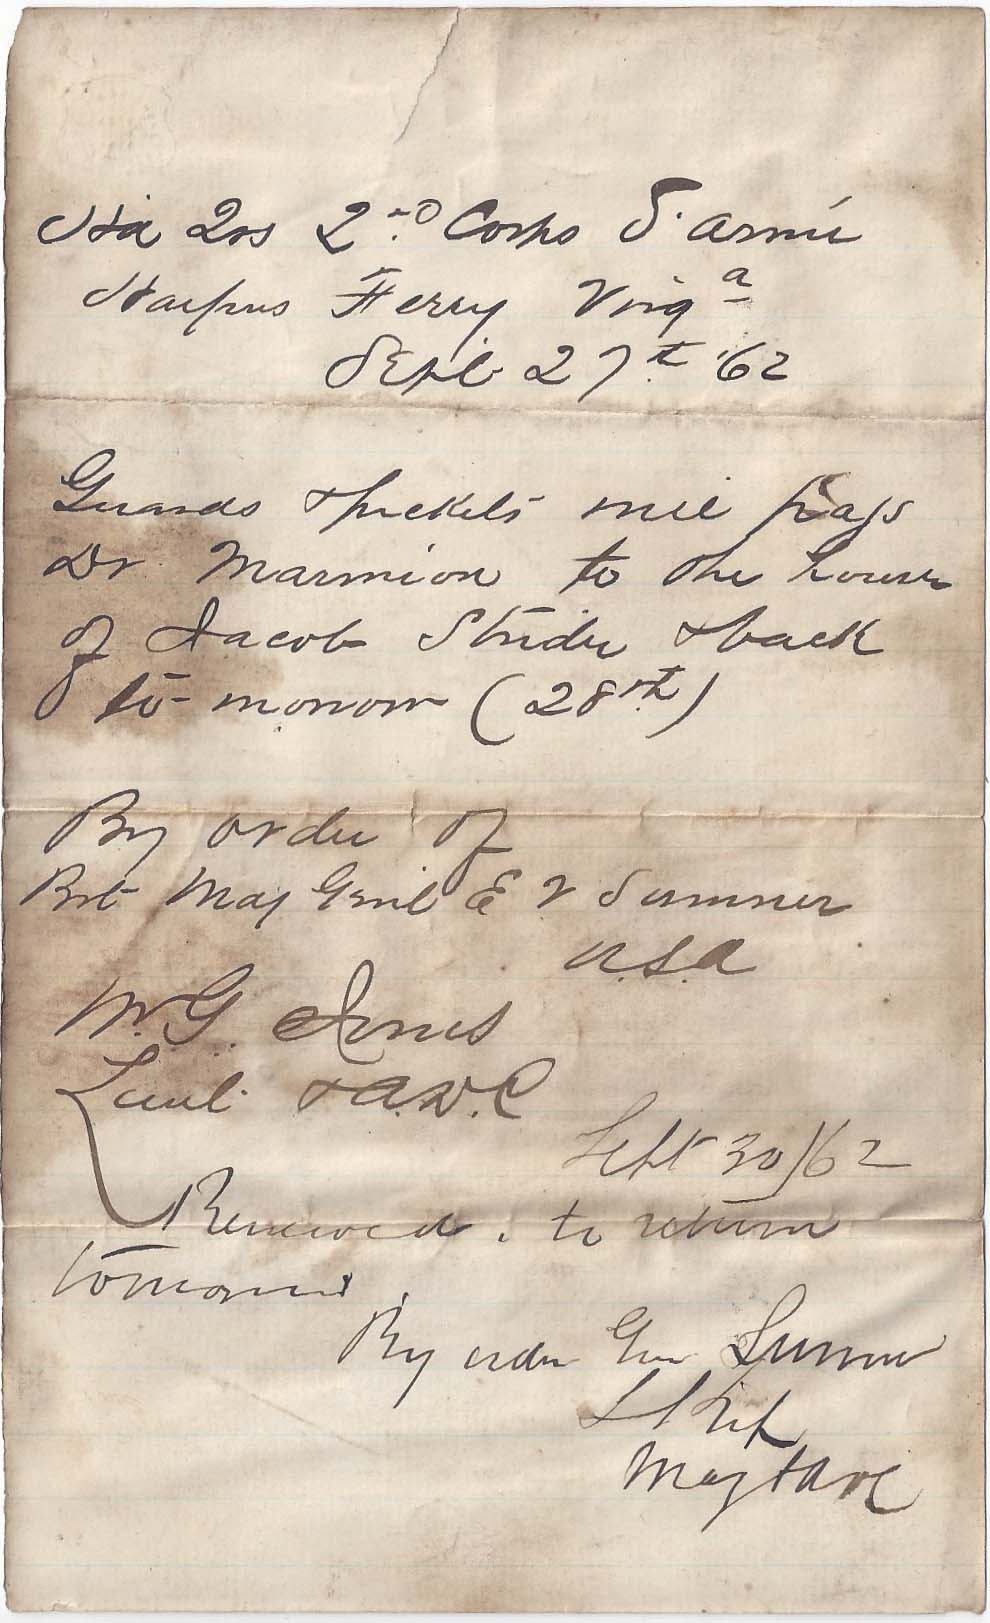 Hd Qrs 2nd Corps D'Armie
Harpers Ferry Virga
Sept 27th '62
Guards & pickets will pass
Dr Marmion to the house
of Jacob Strider & back
to-morrow (28th)
By order of
Bvt Maj Genl E V Sumner
U.S.A
W.G. Jones
Lieut & A.D.C
Sept 30/62
Renewed. to return
tomorrow
By order Gen Sumner
L Kip
Maj & ADC